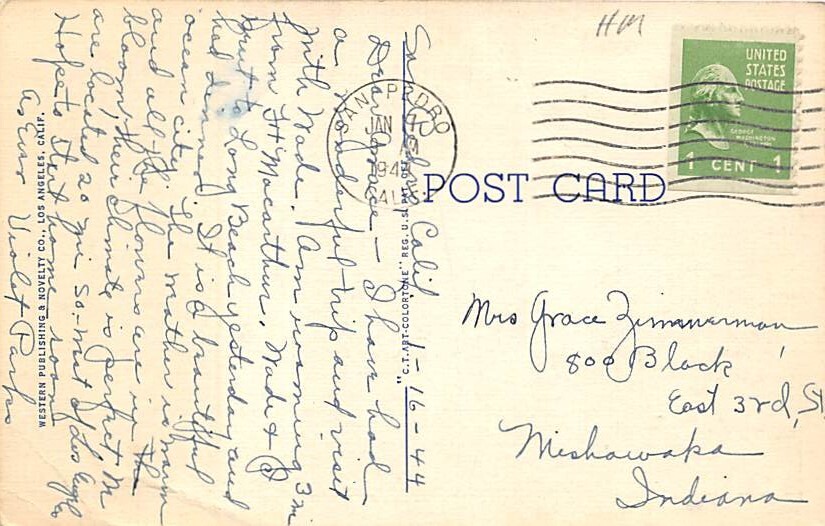 HM
UNITED
STATES
POSTAGE
GEORGE
WASHINGTON
1 CENT 1
SAN PEDRO
JAN 17
CALIF.
POST CARD
Mrs Grace Zimmerman
800 Block
East 3rd, St
Mishawaka
Indiana
San Pedro, Calif. 1-16-44
Dear Grace — I have had
a wonderful trip and visit
with Wade. Am rooming 3 mi
from Ft Macarthur. Wade & I
went to Long Beach yesterday and
had dinner. It is a beautiful
ocean city. The weather is warm
and all the flowers are in
bloom, their climate is perfect. We
are located 20 mi so. west of Los Angeles
Hope to start home soon
As Ever Violet Parks
WESTERN PUBLISHING & NOVELTY CO., LOS ANGELES, CALIF.
"C.T. ART-COLORTONE" REG. U.S. PAT. OFF.